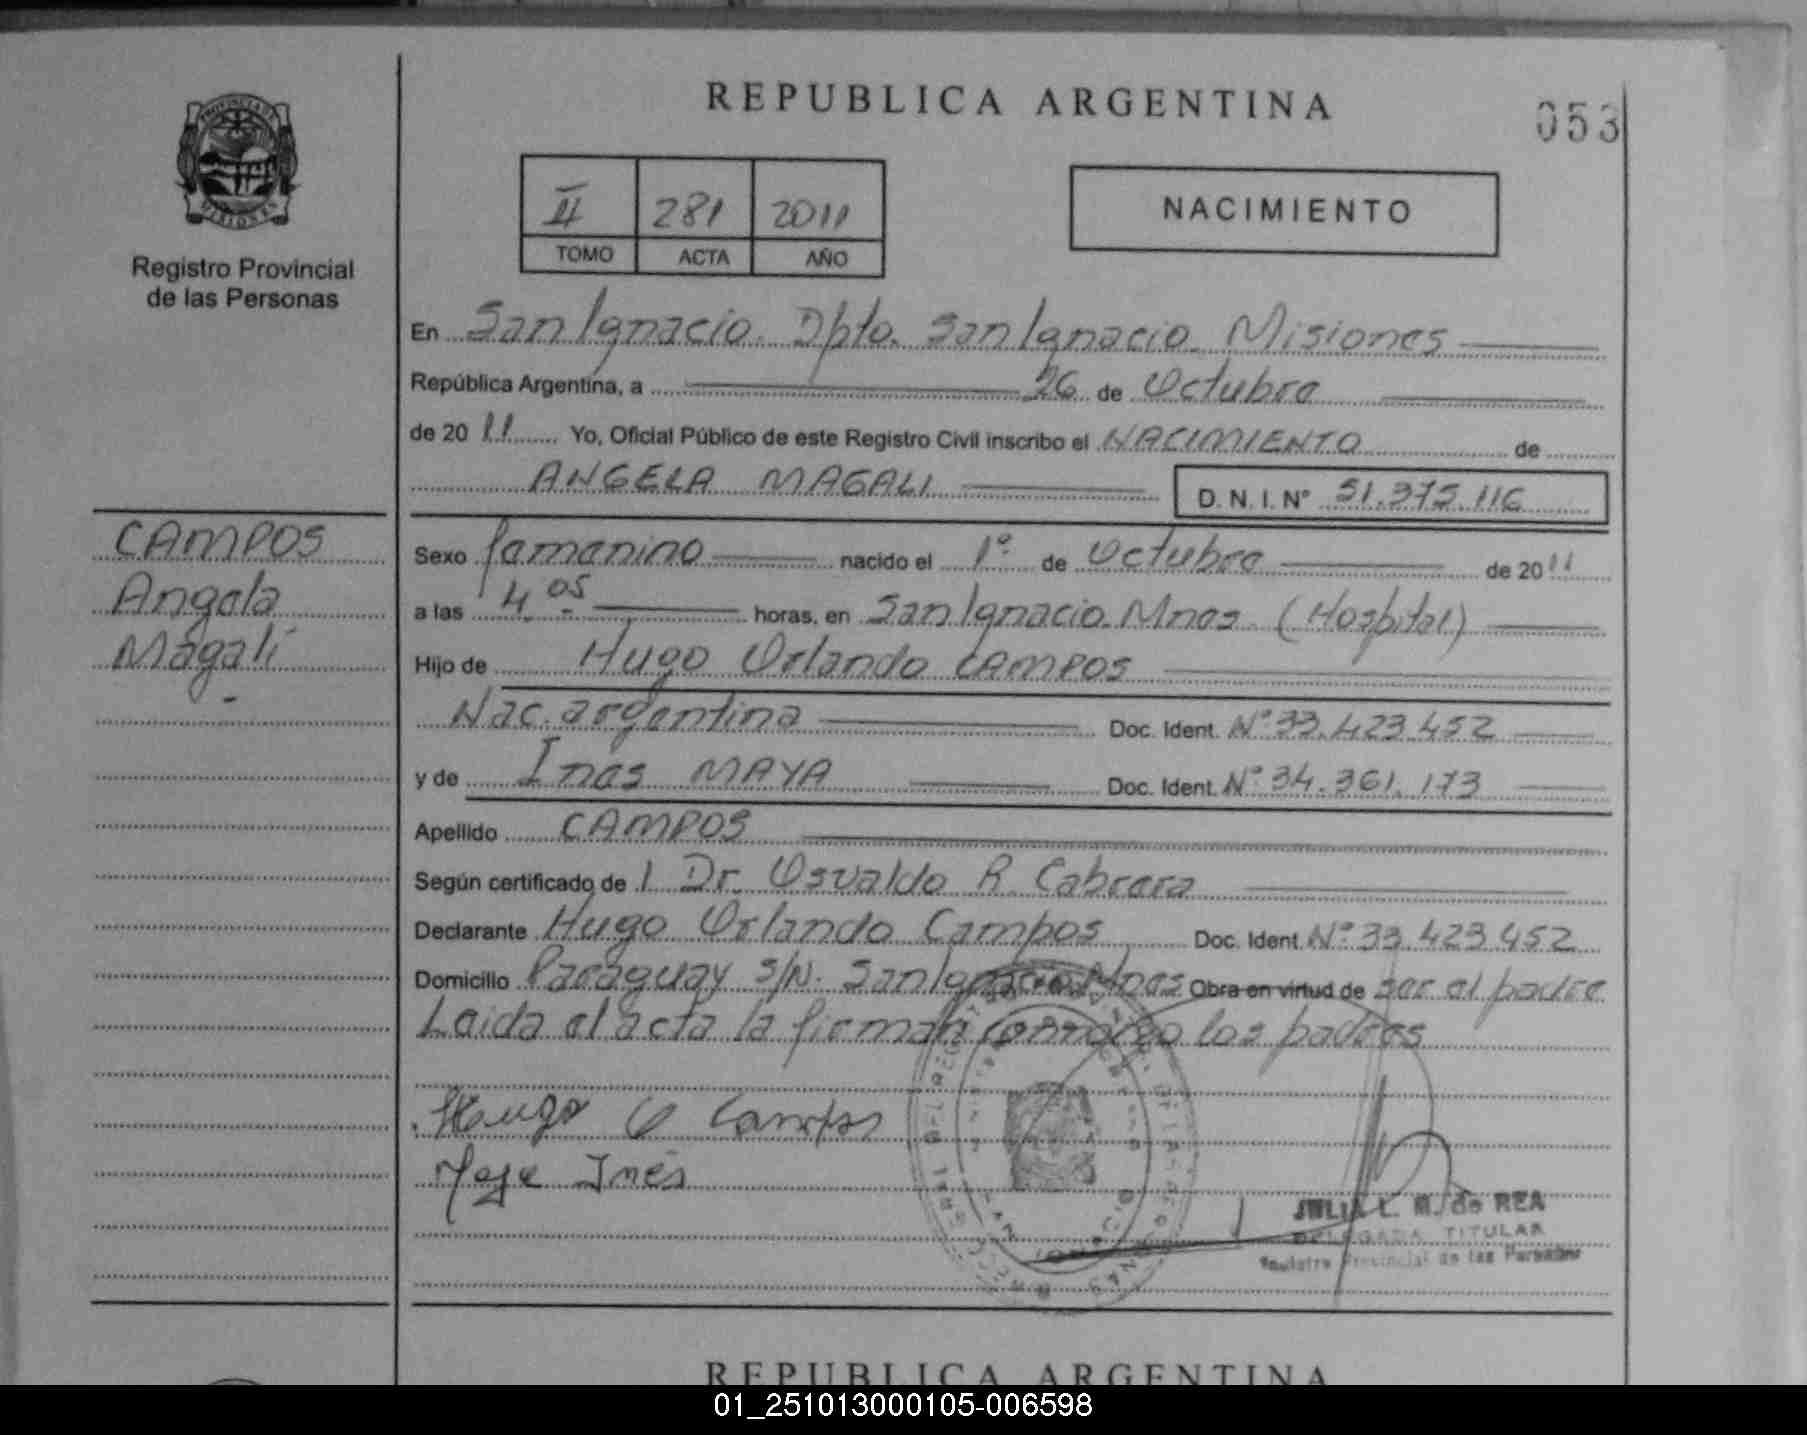 REPUBLICA ARGENTINA
053
PROVINCIA DE
MISIONES
Registro Provincial
de las Personas
II 281 2011
TOMO ACTA AÑO
NACIMIENTO
En San Ignacio. Dpto. San Ignacio Misiones
República Argentina, a 26 de Octubre
de 20 11 Yo, Oficial Público de este Registro Civil inscribo el NACIMIENTO de
ANGELA MAGALI D. N. I. N° 51.375.116
CAMPOS
Angela
Magalí
Sexo femenino nacido el 1° de Octubre de 20 11
a las 4 05 horas, en San Ignacio. Mnes (Hospital)
Hijo de Hugo Orlando CAMPOS
Nac. argentina Doc. Ident. N° 33.423.452
y de Ines MAYA Doc. Ident. N° 34.361.173
Apellido CAMPOS
Según certificado de 1 Dr. Osvaldo R. Cabrera
Declarante Hugo Orlando Campos Doc. Ident. N° 33.423.452
Domicilio Paraguay s/N. San Ignacio Mnes Obra en virtud de ser el padre
Leida el acta la firman conmigo los padres
Hugo O Campos
Inés
JULIA L. M. de REA
DELEGADA TITULAR
Registro Provincial de las Personas
REPUBLICA ARGENTINA
01_251013000105-006598